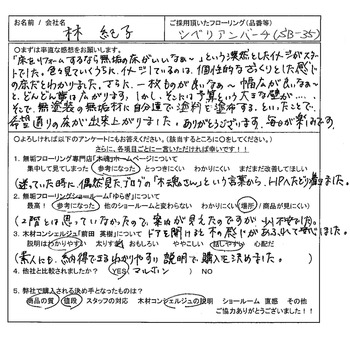 お名前 / 会社名
ご採用頂いたフローリング(品番等)
林 紀子
シベリアンバーチ(SB-35)
○まずは率直な感想をお願いします。
「床をリフォームするなら無垢の床がいいなぁ～」という漠然としたイメージがスタート
でした。色々見ていくうちに、イメージしているのは、個性的なざっくりとした感じ
の床だとわかりました。さらに、一枚ものが良いなぁ～ 幅広が良いなぁ～
と、どんどん夢は広がります。しかし、そこは予算という大きな壁が…。
そこで、無塗装の無垢材に自分達で塗料を塗布する、といったことで、
希望通りの床が出来上がりました。ありがとうございます。毎日が楽しみです。
○よろしければ以下のアンケートにもお答えください。(該当するところに○をしてください)
さらに、各項目ごとに一言いただければ幸いです!!
1. 無垢フローリング専門店「木魂」ホームページについて
集中して見てしまった 参考になった とっつきにくい わかりにくい まだまだ改善してほしい
(迷っていた時に、偶然見たブログの「木魂さん」という言葉から、HPへたどり着きました。)
2. 無垢フローリングショールーム「ゆらぎ」について
最高! 参考になった 他のショールームと変わらない わかりにくい(場所 / 商品が見にくい)
3. 木材コンシェルジュ「前田 英樹」について
説明はわかりやすい 太りすぎ おもしろい ややこしい 話しやすい 心配だ
(素人にも、納得できるわかりやすい説明で購入を決めました。)
4. 他社と比較されましたか? YES( マルホン ) NO
5. 弊社で購入される決め手となったものは?
商品の質 値段 スタッフの対応 木材コンシェルジュの説明 ショールーム 直感 その他
ご協力ありがとうございました!!